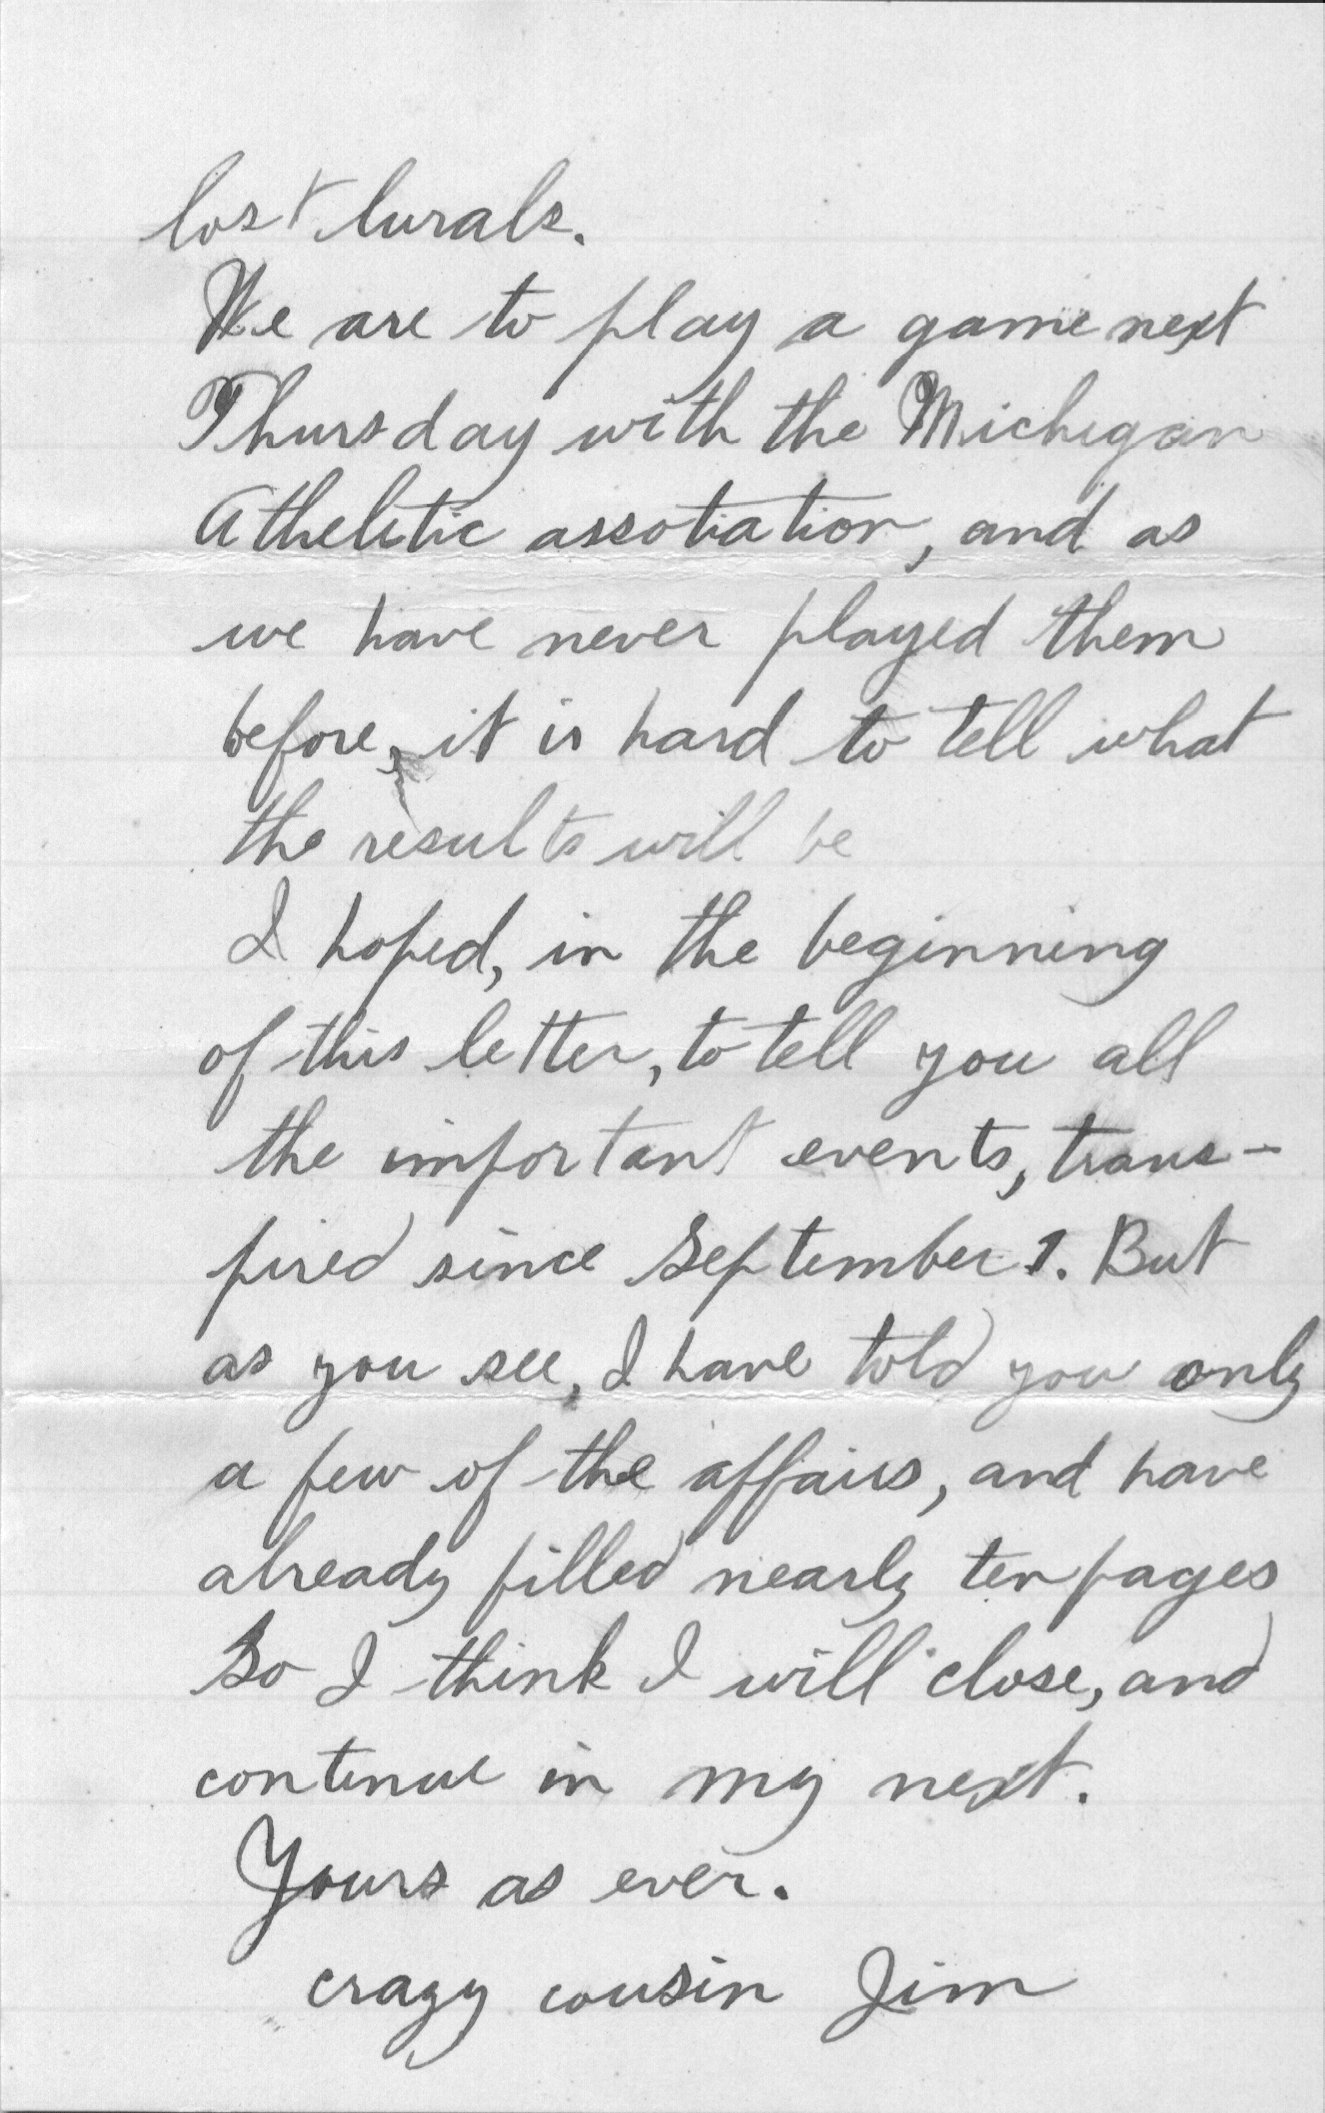 lost lurals.
We are to play a game next
Thursday with the Michigan
Atheletic assotiation, and as
we have never played them
before, it is hard to tell what
the results will be
I hoped, in the beginning
of this letter, to tell you all
the important events, trans-
pired since September 1. But
as you see, I have told you only
a few of the affairs, and have
already filled nearly ten pages
So I think I will close, and
continue in my next.
Yours as ever.
crazy cousin Jim